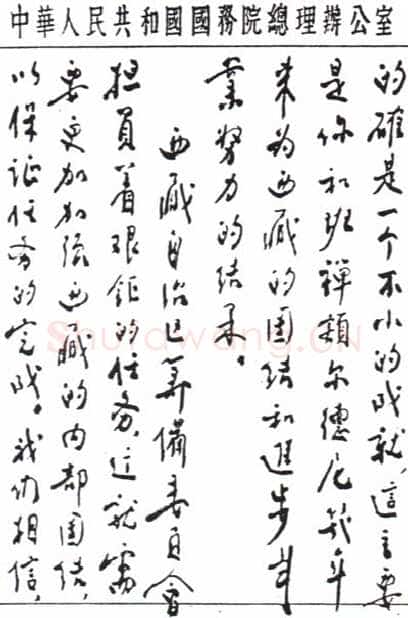 中華人民共和國國務院總理辦公室
的確是一个不小的成就，這主要
是你和班禪額尔德尼幾年
来为西藏的團结和進步事
業努力的结果。
西藏自治区筹備委員會
担負着艰鉅的任务，这就需
要更加加强西藏的内部團结，
以保证任务的完成。我们相信，
Shufawang.CN